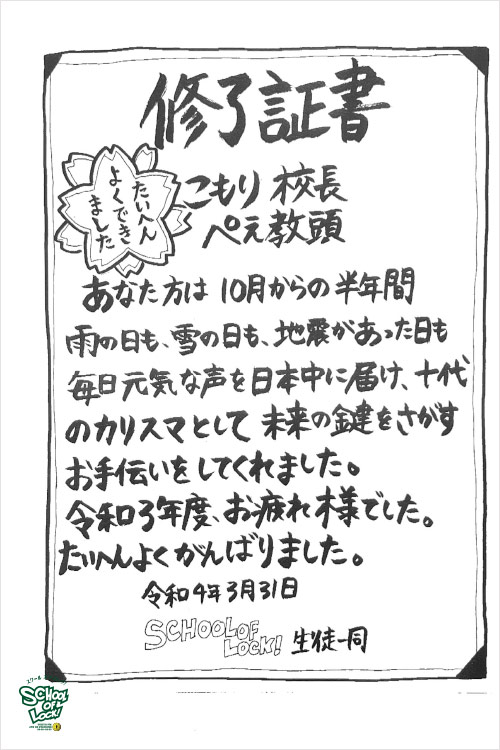 修了証書
たいへん
よくでき
ました
こもり校長
ぺえ教頭
あなた方は10月からの半年間
雨の日も、雪の日も、地震があった日も
毎日元気な声を日本中に届け、十代
のカリスマとして未来の鍵をさがす
お手伝いをしてくれました。
令和3年度、お疲れ様でした。
たいへんよくがんばりました。
令和4年3月31日
SCHOOL OF LOCK! 生徒一同
SCHOOL
OF
LOCK!